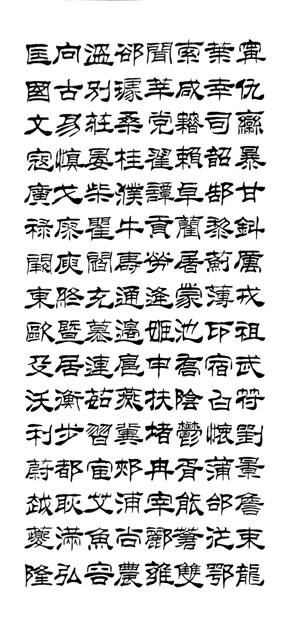 甯仇欒暴甘鈄厲戎祖武符劉景詹束龍
葉幸司韶郜黎薊薄印宿白懷蒲邰從鄂
索咸籍賴卓藺屠蒙池喬陰鬱胥能蒼雙
聞莘党翟譚貢勞逄姬申扶堵冉宰酈雍
郤璩桑桂濮牛壽通邊扈燕冀郟浦尚農
溫別莊晏柴瞿閻充慕連茹習宦艾魚容
向古易慎戈廖庾終暨居衡步都耿滿弘
匡國文寇廣祿闕東歐殳沃利蔚越夔隆